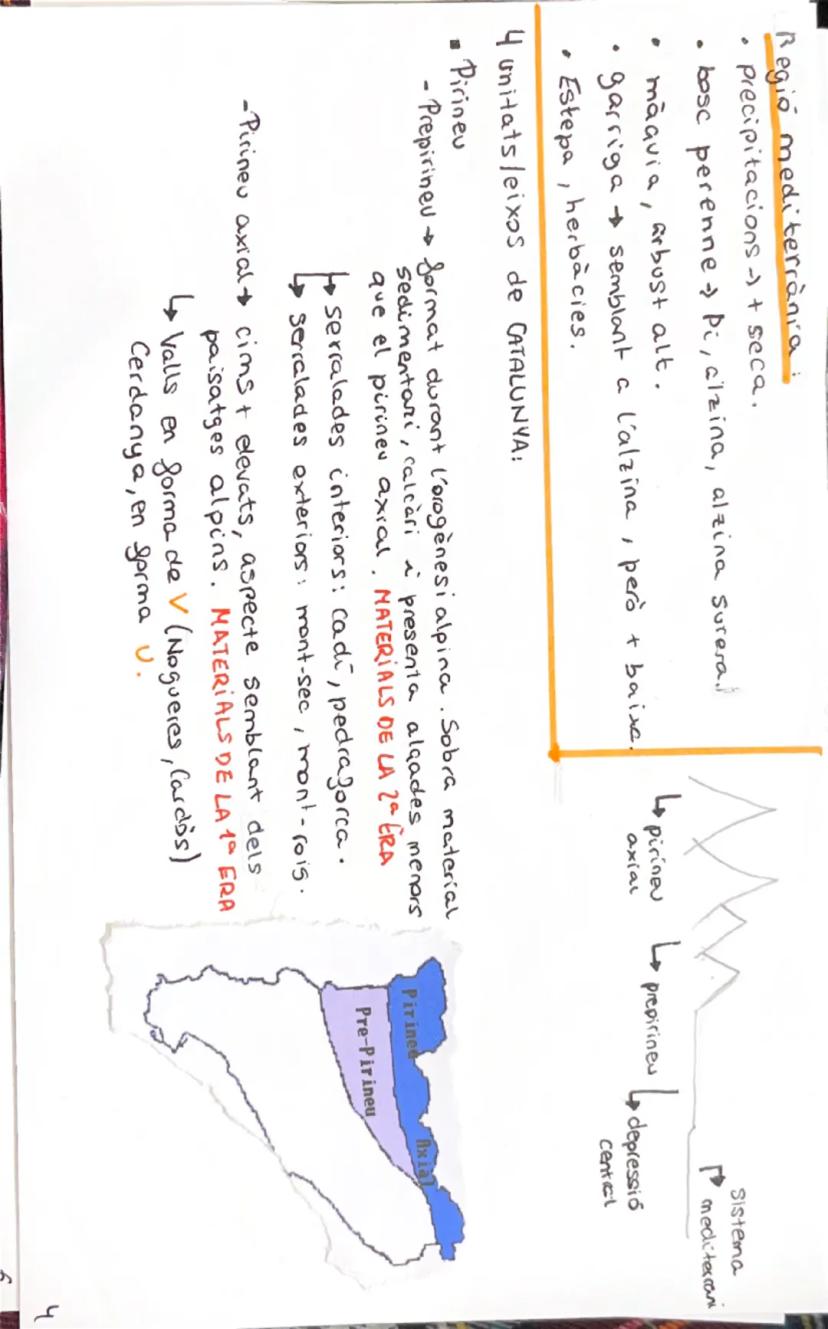 Regió mediterrània:
• precipitacions → + seca.
• bosc perenne → Pi, alzina, alzina surera.
• màquia, arbust alt.
• garriga → semblant a l'alzina, però + baixa.
• Estepa, herbàcies.
sistema
mediterrani
pirineu
axial
prepirineu
depressió
central
4 unitats/eixos de CATALUNYA:
▪ Pirineu
- Prepirineu → format durant l'orogènesi alpina. Sobra material
sedimentari, calcàri i presenta alçades menors
que el pirineu axial. MATERIALS DE LA 2ª ERA
↳ serralades interiors: cadí, pedragorca.
↳ serralades exteriors: mont-sec, mont-rois.
- Pirineu axial → cims + elevats, aspecte semblant dels
paisatges alpins. MATERIALS DE LA 1ª ERA
↳ Valls en forma de V (Nogueres, Cardòs)
Cerdanya, en forma U.
Pirineu Axial
Pre-Pirineu
4